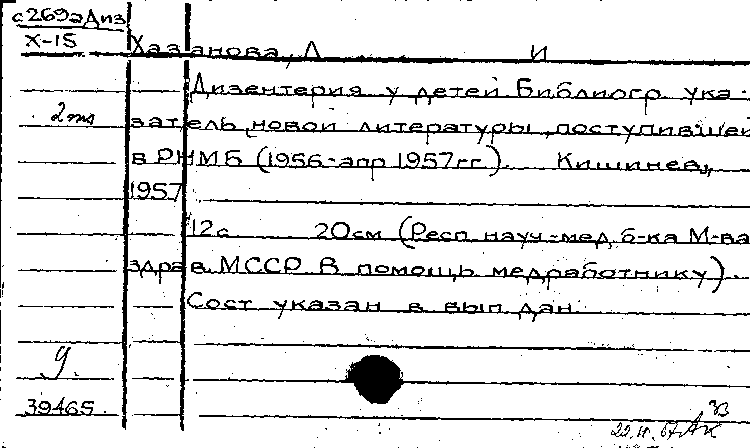 с269аДиз
Х-15
Хазанова, Л И
Дизентерия у детей Библиогр ука-
2 экз затель новой литературы, поступившей
в РНМБ (1956-апр 1957гг). Кишинев,
1957
12с 20см (Респ науч-мед, б-ка М-ва
здрав МССР В помощь медработнику)
Сост указан в вып дан
39465